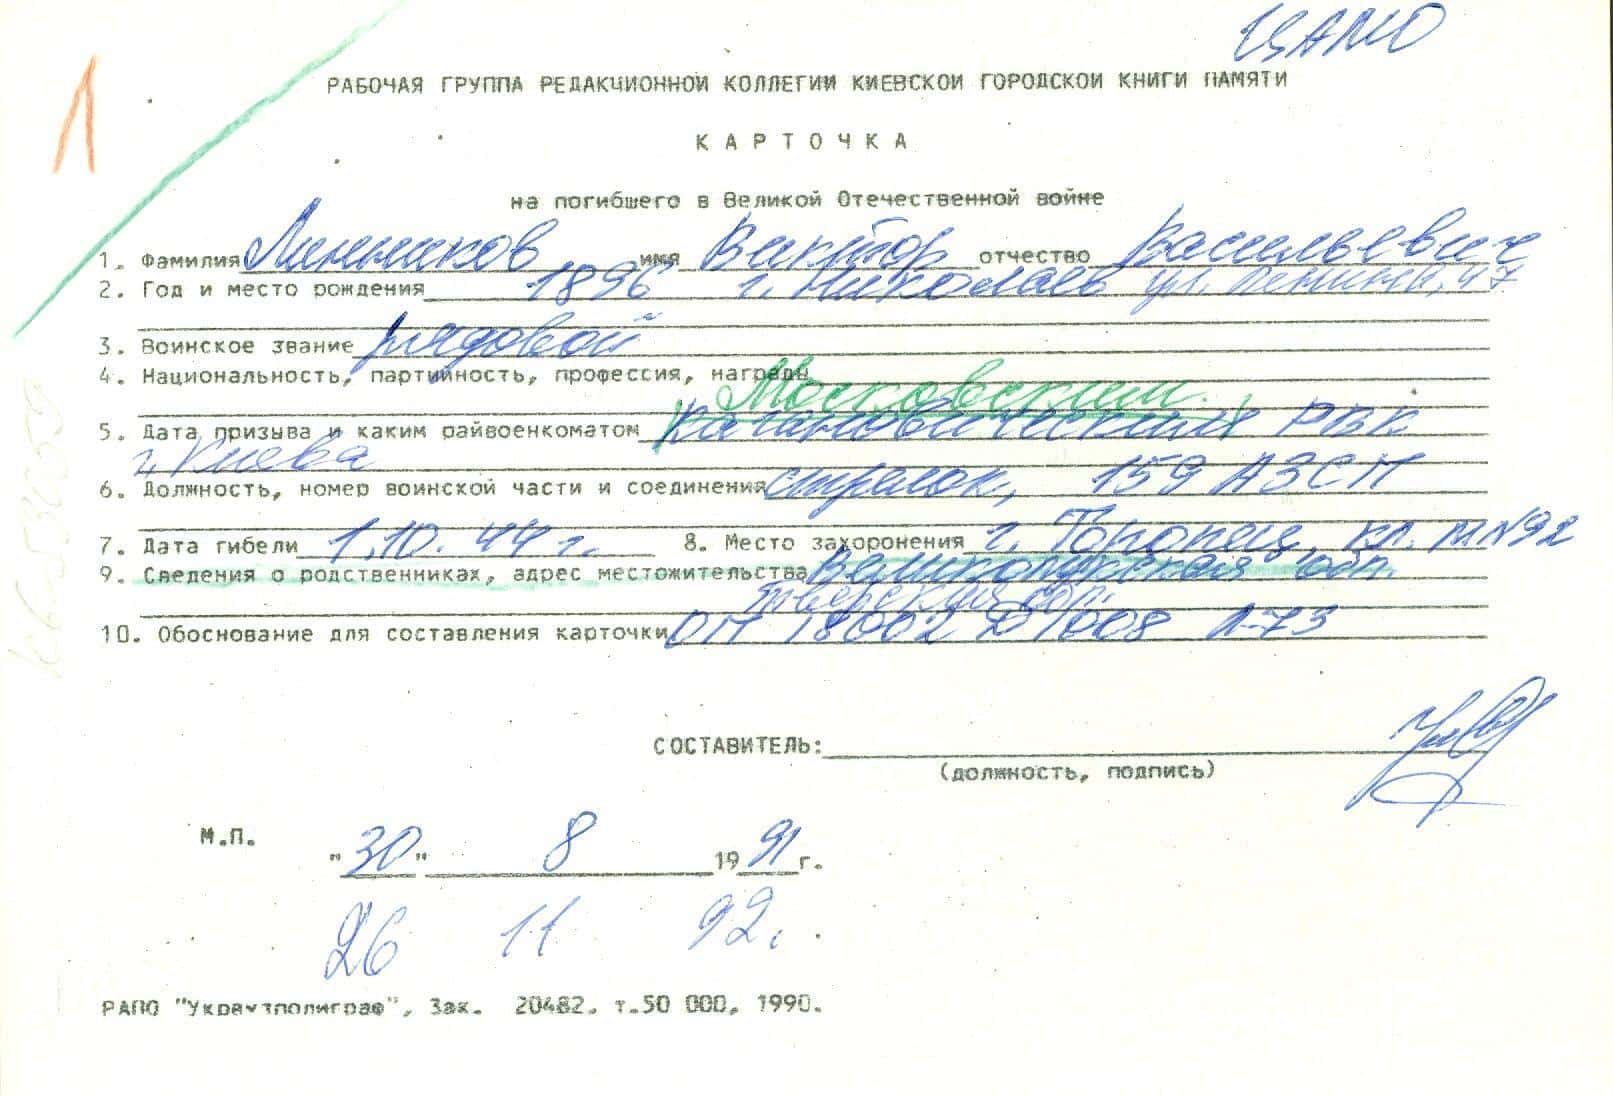 ЦАМО
1
РАБОЧАЯ ГРУППА РЕДАКЦИОННОЙ КОЛЛЕГИИ КИЕВСКОЙ ГОРОДСКОЙ КНИГИ ПАМЯТИ
КАРТОЧКА
на погибшего в Великой Отечественной войне
1. Фамилия Линников имя Виктор отчество Васильевич
2. Год и место рождения 1896 г. Николаев ул. Ленина, 47
3. Воинское звание рядовой
4. Национальность, партийность, профессия, награды
Московским
5. Дата призыва и каким райвоенкоматом Кагановическим РВК
г. Киева
6. Должность, номер воинской части и соединения стрелок, 159 АЗСП
7. Дата гибели 1.10.44 г. 8. Место захоронения г. Торопец, кл. М№92
9. Сведения о родственниках, адрес местожительства Великолукская обл.
Тверская обл.
10. Обоснование для составления карточки ОП 18002 Д 1008 Л-73
СОСТАВИТЕЛЬ:
(должность, подпись)
М.П.
"30" 8 1991 г.
26 11 92.
РАПО "Укрвузполиграф", Зак. 20482. т.50 000, 1990.